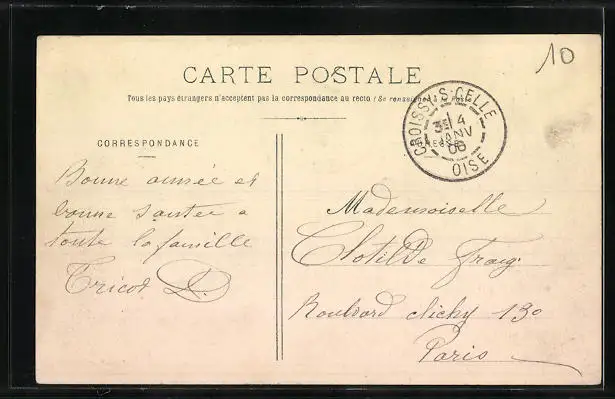 10
CARTE POSTALE
Tous les pays étrangers n'acceptent pas la correspondance au recto (Se renseigner à la Poste)
CROISSY-S-CELLE
3E 4
JANV
06
OISE
CORRESPONDANCE
ADRESSE
Bonne année et
bonne santée a
toute la famille
Tricot D.
Mademoiselle
Clotilde
Bouldard clichy 130
Paris